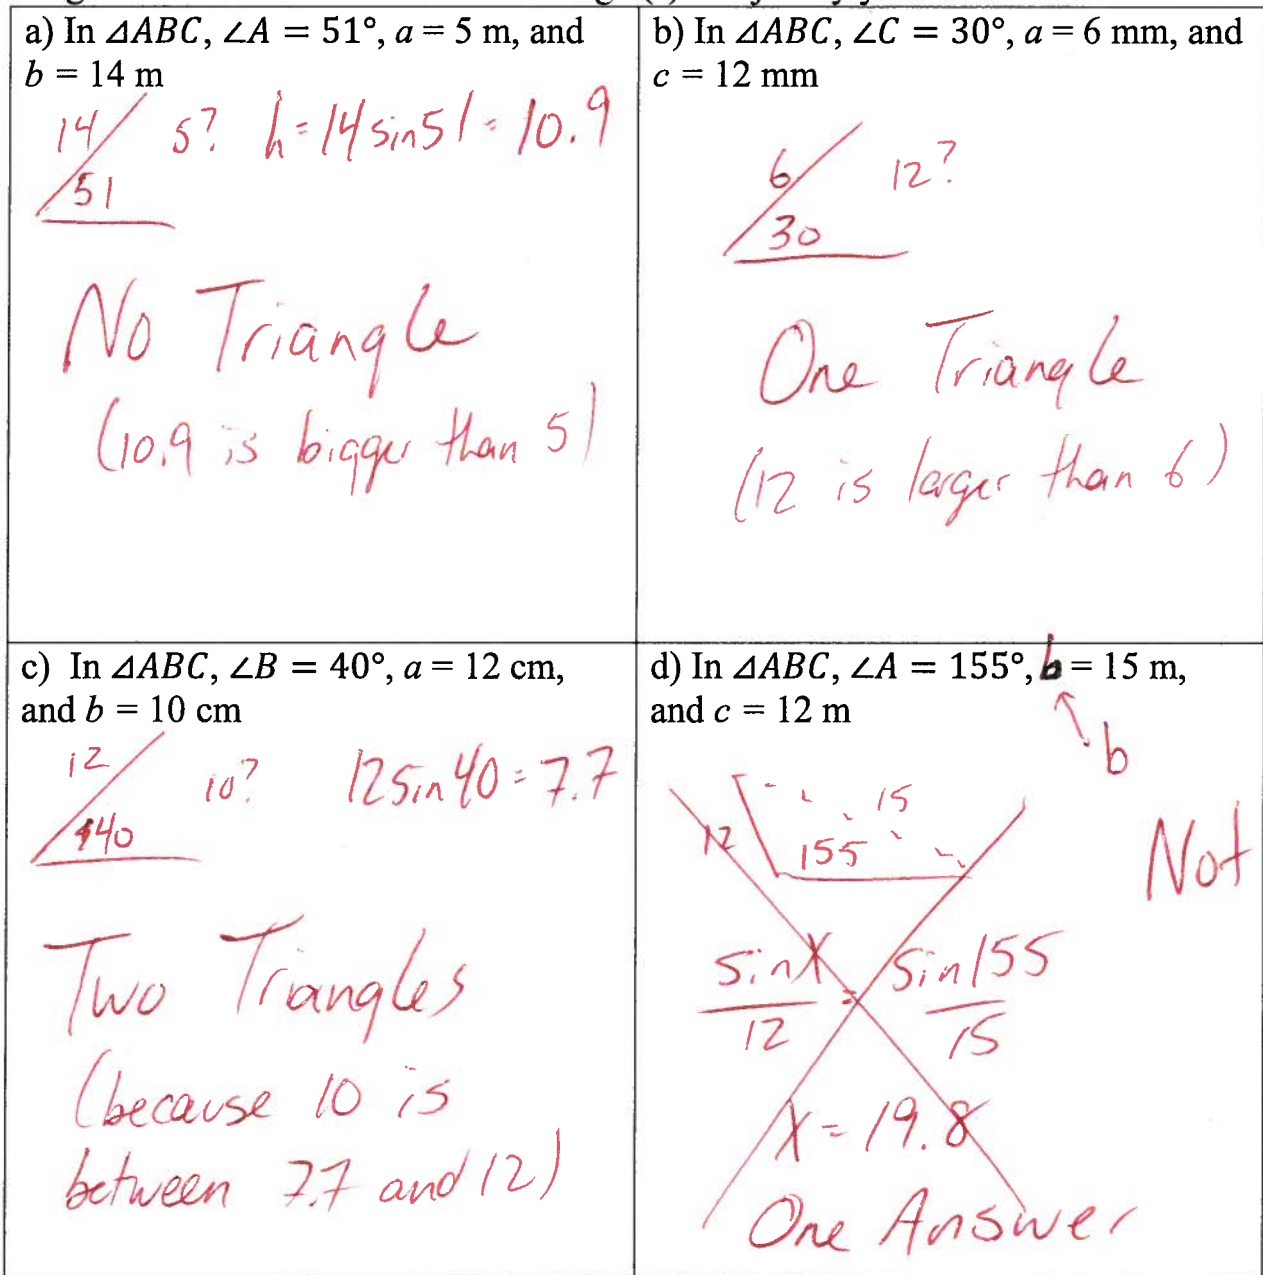 a) In ⊿ABC, ∠A = 51°, a = 5 m, and
b = 14 m
14 5? h = 14 sin 51 = 10.9
51
No Triangle
(10.9 is bigger than 5)
b) In ⊿ABC, ∠C = 30°, a = 6 mm, and
c = 12 mm
6 12?
30
One Triangle
(12 is larger than 6)
c) In ⊿ABC, ∠B = 40°, a = 12 cm,
and b = 10 cm
12 10? 12 sin 40 = 7.7
40
Two Triangles
(because 10 is
between 7.7 and 12)
d) In ⊿ABC, ∠A = 155°, b = 15 m,
and c = 12 m
b
15
12 155
Not
sin X / 12 = sin 155 / 15
X = 19.8
One Answer